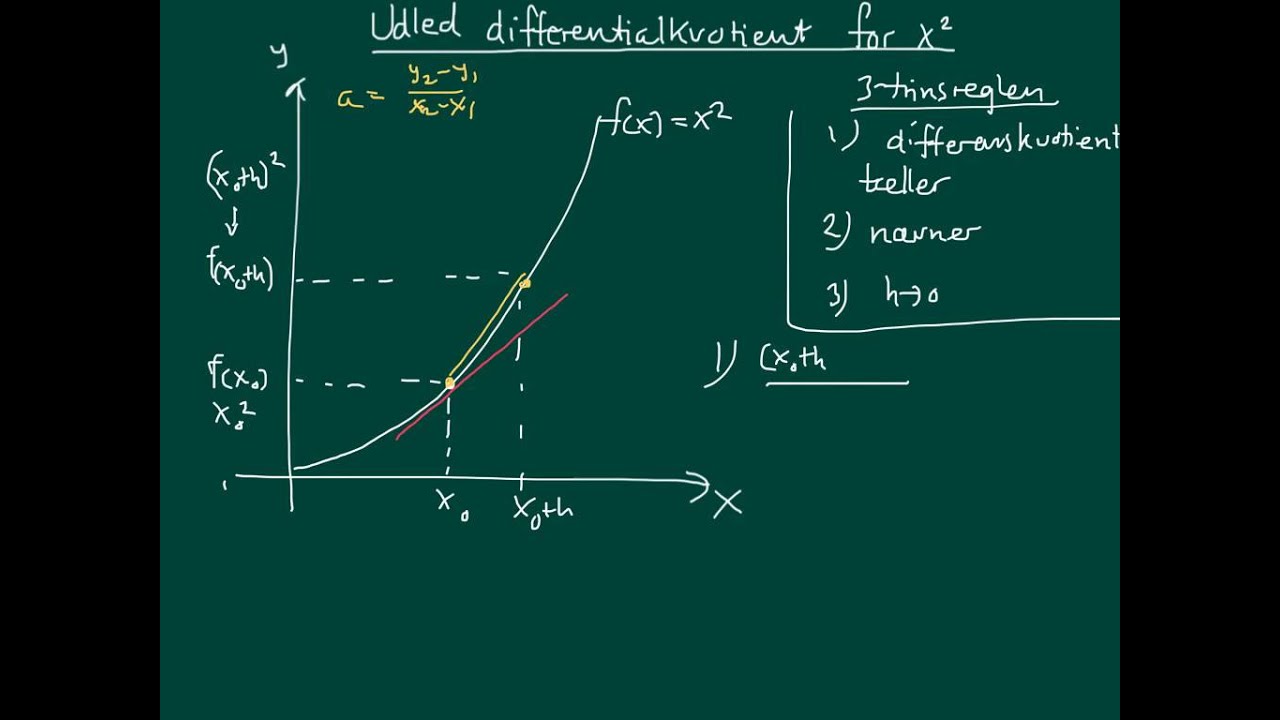 Udled differentialkvotient for x²
y
a = y₂-y₁ / x₂-x₁
f(x) = x²
(x₀+h)²
↓
f(x₀+h)
f(x₀)
x₀²
x₀
x₀+h
x
3-trinsreglen
1) differenskvotient
tæller
2) nævner
3) h→0
1) (x₀+h